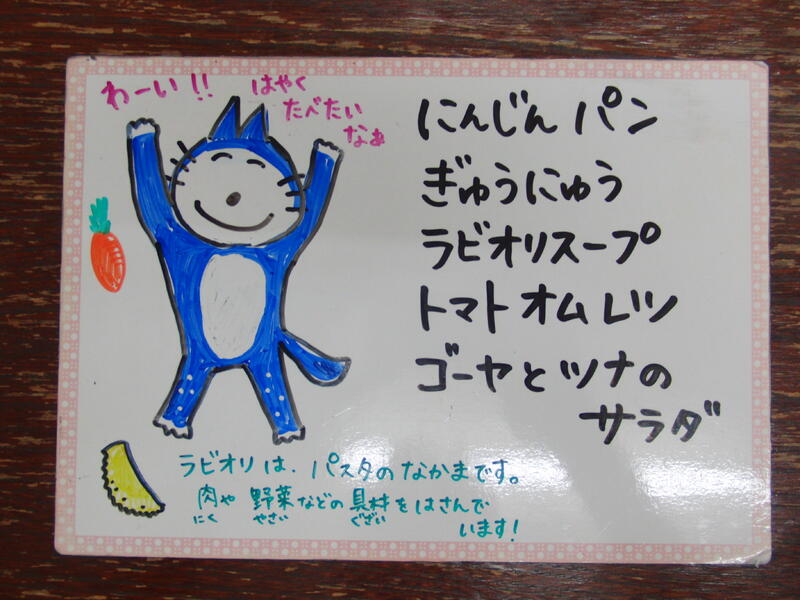 わーい!!
はやく
たべたい
なぁ
にんじん パン
ぎゅうにゅう
ラビオリスープ
トマト オムレツ
ゴーヤと ツナの
サラダ
ラビオリは、パスタのなかまです。
肉や 野菜などの具材をはさんで
にく やさい ぐざい
います!